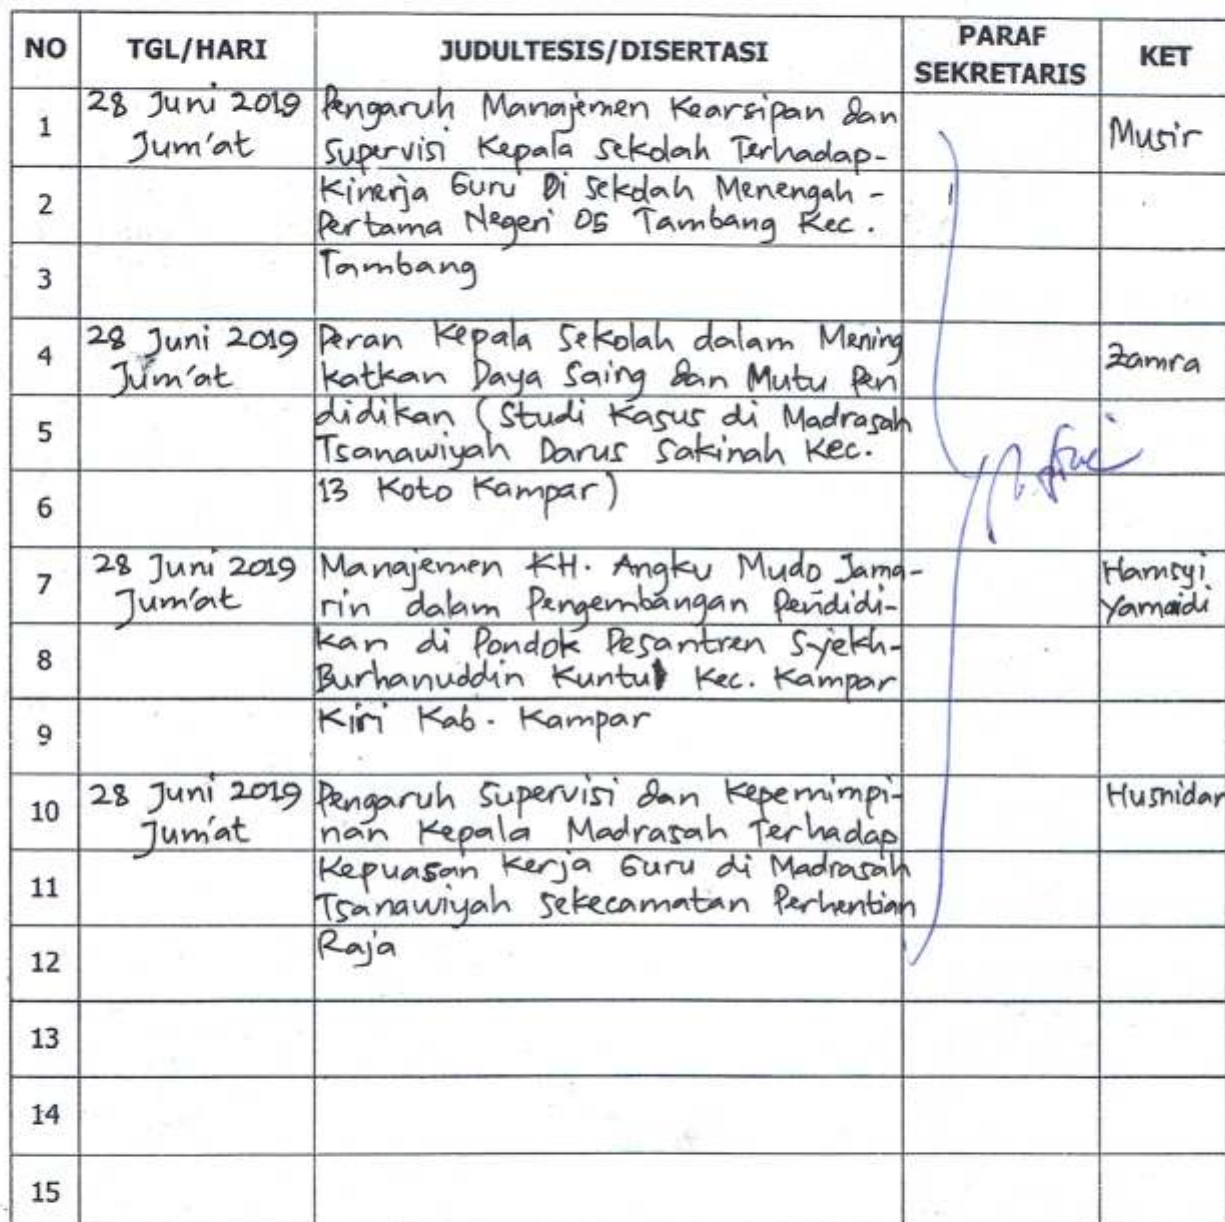 NO TGL/HARI JUDULTESIS/DISERTASI PARAF SEKRETARIS KET
1 28 Juni 2019 Pengaruh Manajemen Kearsipan dan Musir
Jum'at Supervisi Kepala Sekolah Terhadap-
2 Kinerja Guru Di Sekolah Menengah -
Pertama Negeri 05 Tambang Kec.
3 Tambang
4 28 Juni 2019 Peran Kepala Sekolah dalam Mening Zamra
Jum'at katkan Daya Saing dan Mutu Pen
5 didikan (Studi Kasus di Madrasah
Tsanawiyah Darus Sakinah Kec.
6 13 Koto Kampar)
7 28 Juni 2019 Manajemen KH. Angku Mudo Jama- Hamsyi
Jum'at rin dalam Pengembangan Pendidi- Yamaidi
8 kan di Pondok Pesantren Syekh-
Burhanuddin Kuntu Kec. Kampar
9 Kiri Kab. Kampar
10 28 Juni 2019 Pengaruh Supervisi dan Kepemimpi- Husnidar
Jum'at nan Kepala Madrasah Terhadap
11 Kepuasan Kerja Guru di Madrasah
Tsanawiyah Sekecamatan Perhentian
12 Raja
13
14
15